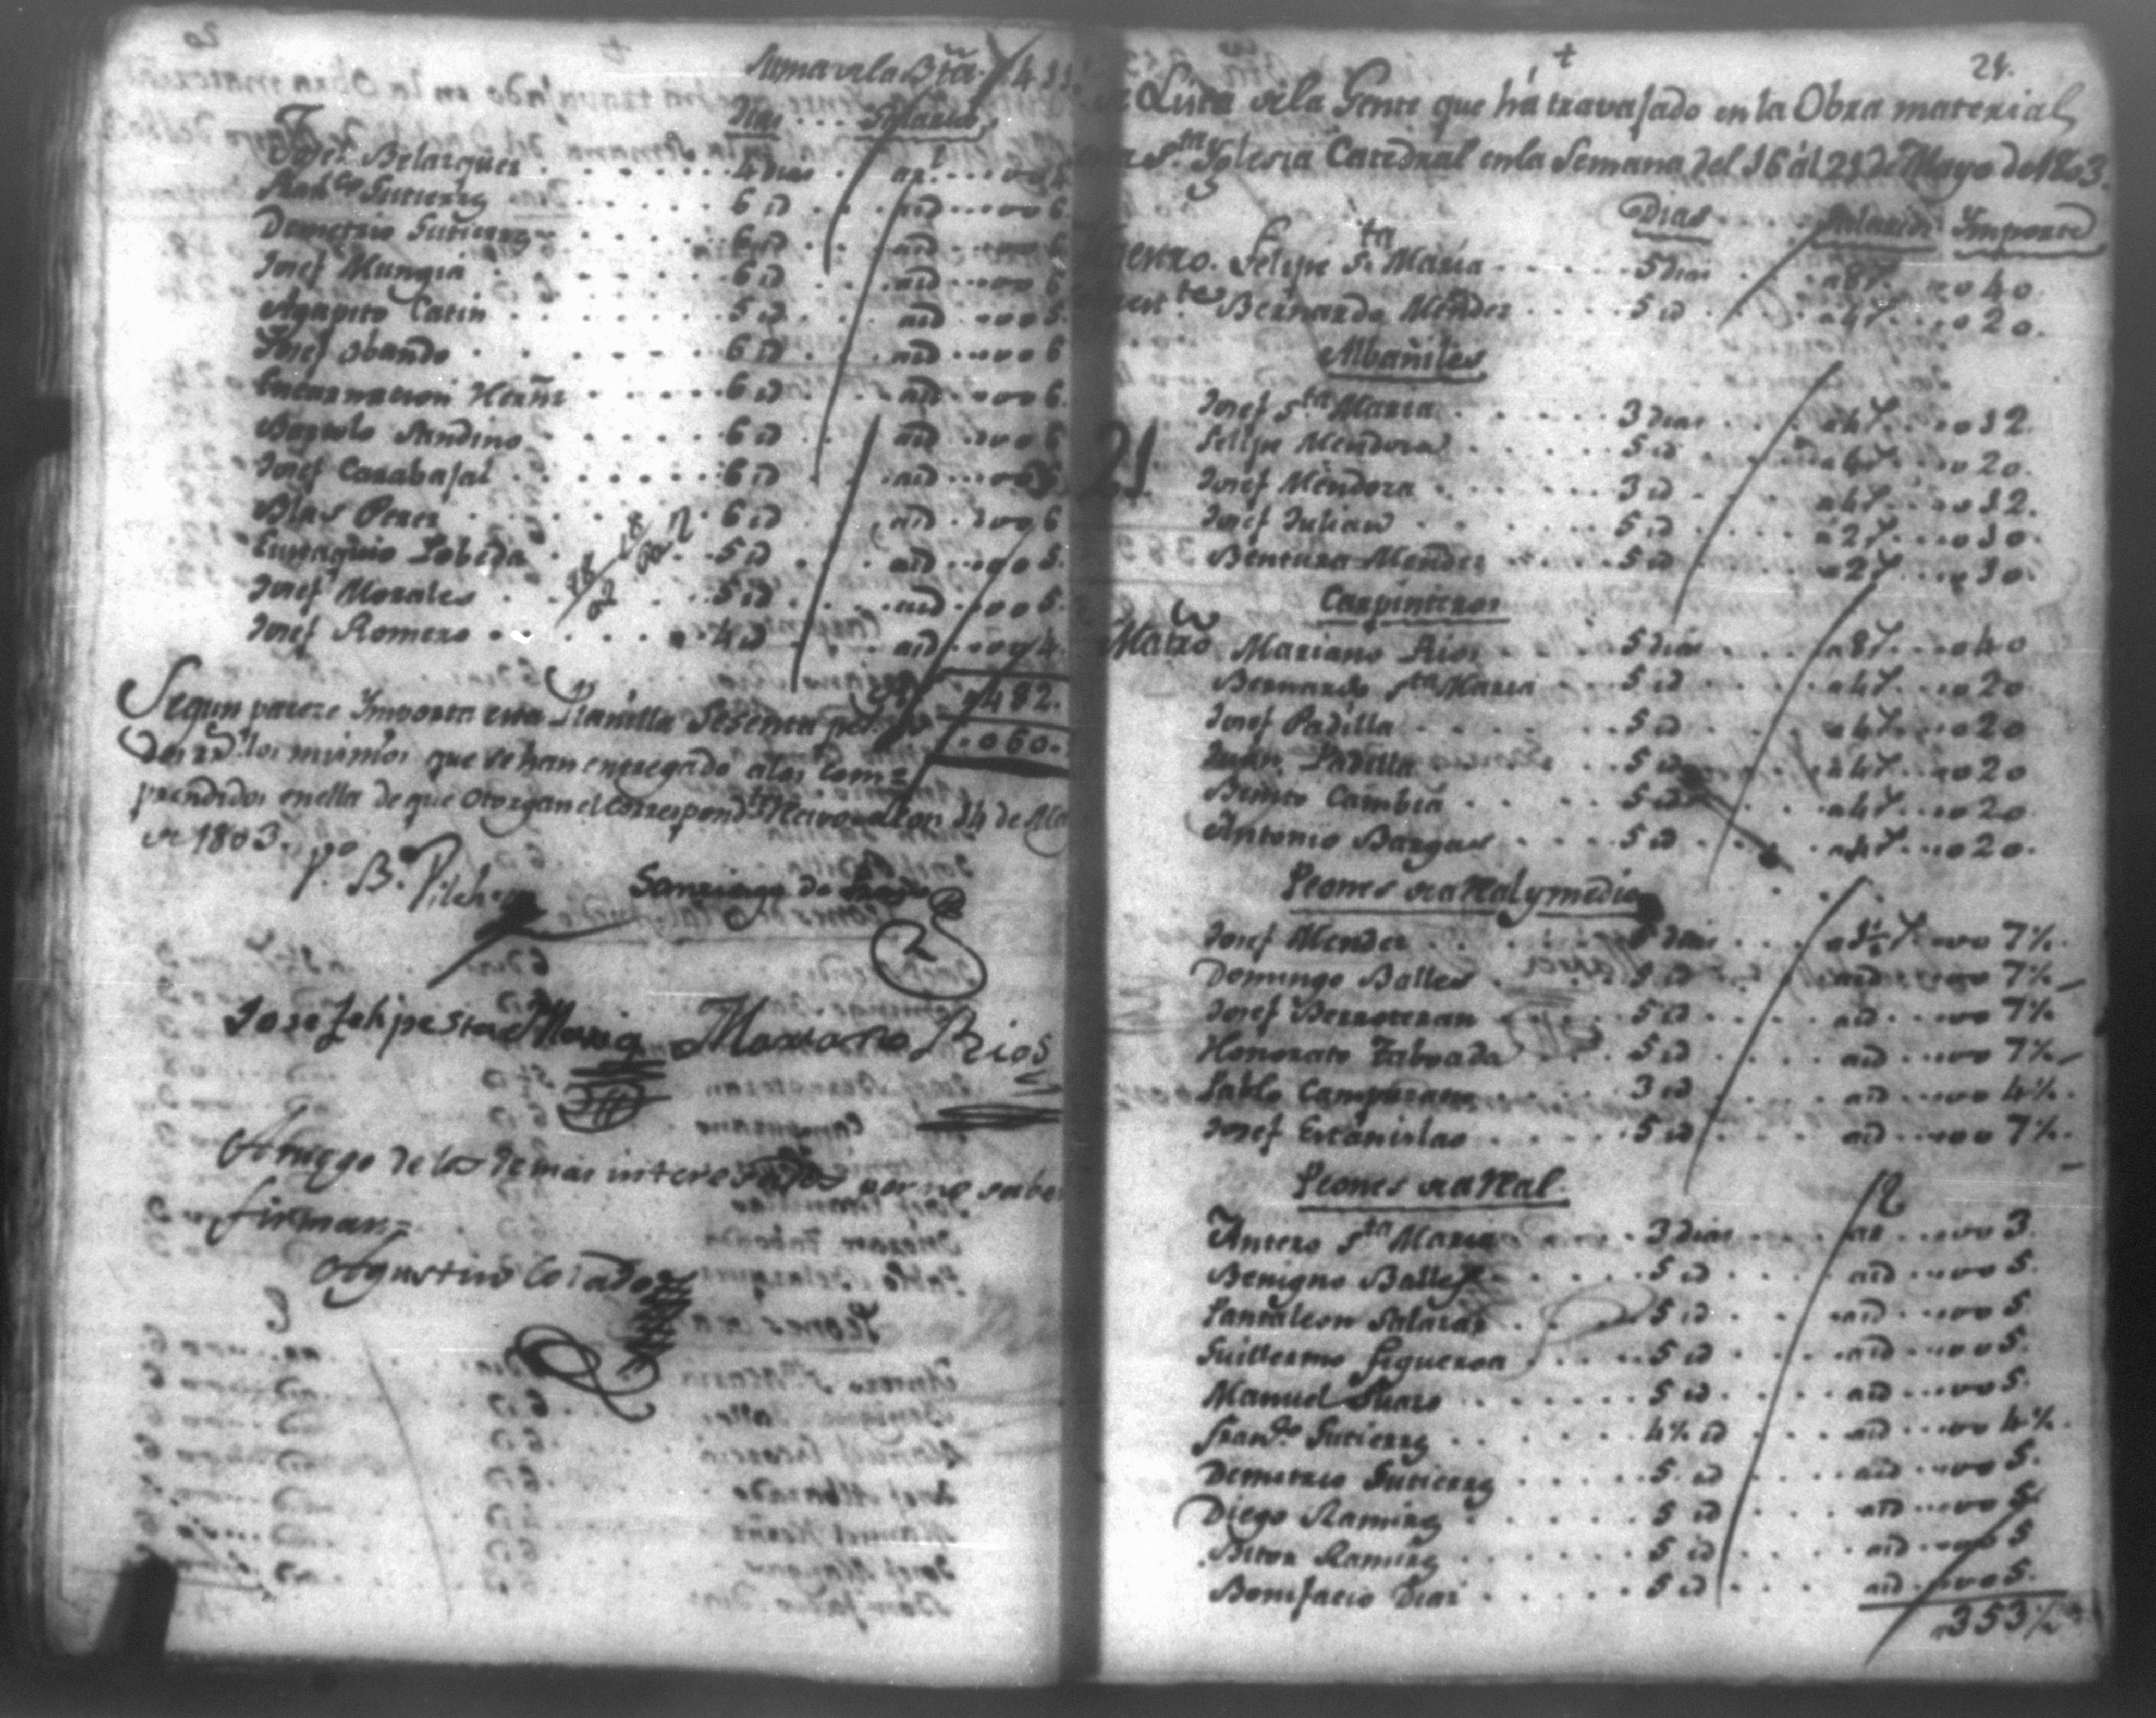 Suma de la Bta. 411
Dias Salarios
Josef Belazquez 4 dias ar. 4
Franco Gutierrz 6 id aid 6
Demetrio Gutierrz 6 id aid 6
Josef Mungia 6 id aid 6
Agapito Catin 5 id aid 5
Josef Obando 6 id aid 6
Encarnacion Herñz 6 id aid 6
Bartolo Sandino 6 id aid 6
Josef Carabajal 6 id aid 6
Blas Perez 6 id aid 6
Eustaquio Lobeda 5 id aid 5
Josef Morales 5 id aid 5
Josef Romero 4 id aid 4
482.
Segun pareze Importa esta Planilla Sesenta pes. 060.
dos rs. los mismos que se han entregado a los Com=
prendidos en ella de que otorgan el correspondte Leon 14 de
de 1803.
V. B. Pilch
Santiago de
Jose felipe Sta Maria Mariano Rios
A ruego de los demas interesados por no saber
firmar=
Agustin Colado
21.
Lista de la Gente que há travajado en la Obra material
Sta Yglesia Catedral en la Semana del 16 ál 21 de Mayo de 1803.
Dias Salarios Importe
Felipe Sta Maria 5 dias a 8r 040
Bernardo Mendez 5 id a 4r 020.
Albañiles
Josef Sta Maria 3 dias a 4r 012
Felipe Mendoza 5 id a 4r 020.
21
Josef Mendoza 3 id a 4r 012.
Josef Julian 5 id a 2r 010.
Bentura Mendez 5 id a 2r 010.
Carpinteros
Matro Mariano Rios 5 dias a 8r 040
Bernardo Sta Maria 5 id a 4r 020
Josef Padilla 5 id a 4r 020
Juan Padilla 5 id a 4r 020
Benito Cambia 5 id a 4r 020
Antonio Bargas 5 id a 4r 020.
Peones de a Real y medio
Josef Mendez 5 dias a 1½ r 7½.
Domingo Balles 5 id aid 7½
Josef Berroteran 5 id aid 7½
Honorato Taboada 5 id aid 7½
Pablo Campuzano 3 id aid 4½.
Josef Estanislao 5 id aid 7½.
Peones de a Real
Antero Sta Maria 3 dias ar 3.
Benigno Balles 5 id aid 5.
Pantaleon Salazar 5 id aid 5
Guillermo Figueroa 5 id aid 5.
Manuel Suazo 5 id aid 5.
Frando Gutierrz 4½ id aid 4½.
Demetrio Gutierrz 5 id aid 5.
Diego Ramirz 5 id aid 5
Bitor Ramirz 5 id aid 5
Bonifacio Diaz 5 id aid 5.
353½